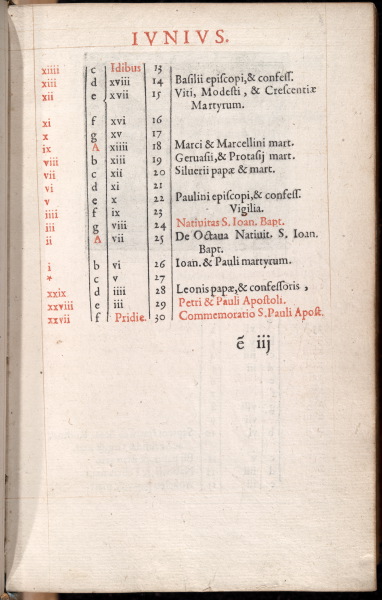 IVNIVS.
xiiii c Idibus 13
xiii d xviii 14 Basilii episcopi, & confess.
xii e xvii 15 Viti, Modesti, & Crescentiæ
Martyrum.
xi f xvi 16
x g xv 17
ix A xiiii 18 Marci & Marcellini mart.
viii b xiii 19 Geruasii, & Protasij mart.
vii c xii 20 Siluerii papæ & mart.
vi d xi 21
v e x 22 Paulini episcopi, & confess.
iiii f ix 23 Vigilia.
iii g viii 24 Natiuitas S. Ioan. Bapt.
ii A vii 25 De Octaua Natiuit. S. Ioan.
Bapt.
i b vi 26 Ioan. & Pauli martyrum.
* c v 27
xxix d iiii 28 Leonis papæ, & confessoris,
xxviii e iii 29 Petri & Pauli Apostoli.
xxvii f Pridie. 30 Commemoratio S. Pauli Apost.
ẽ iij